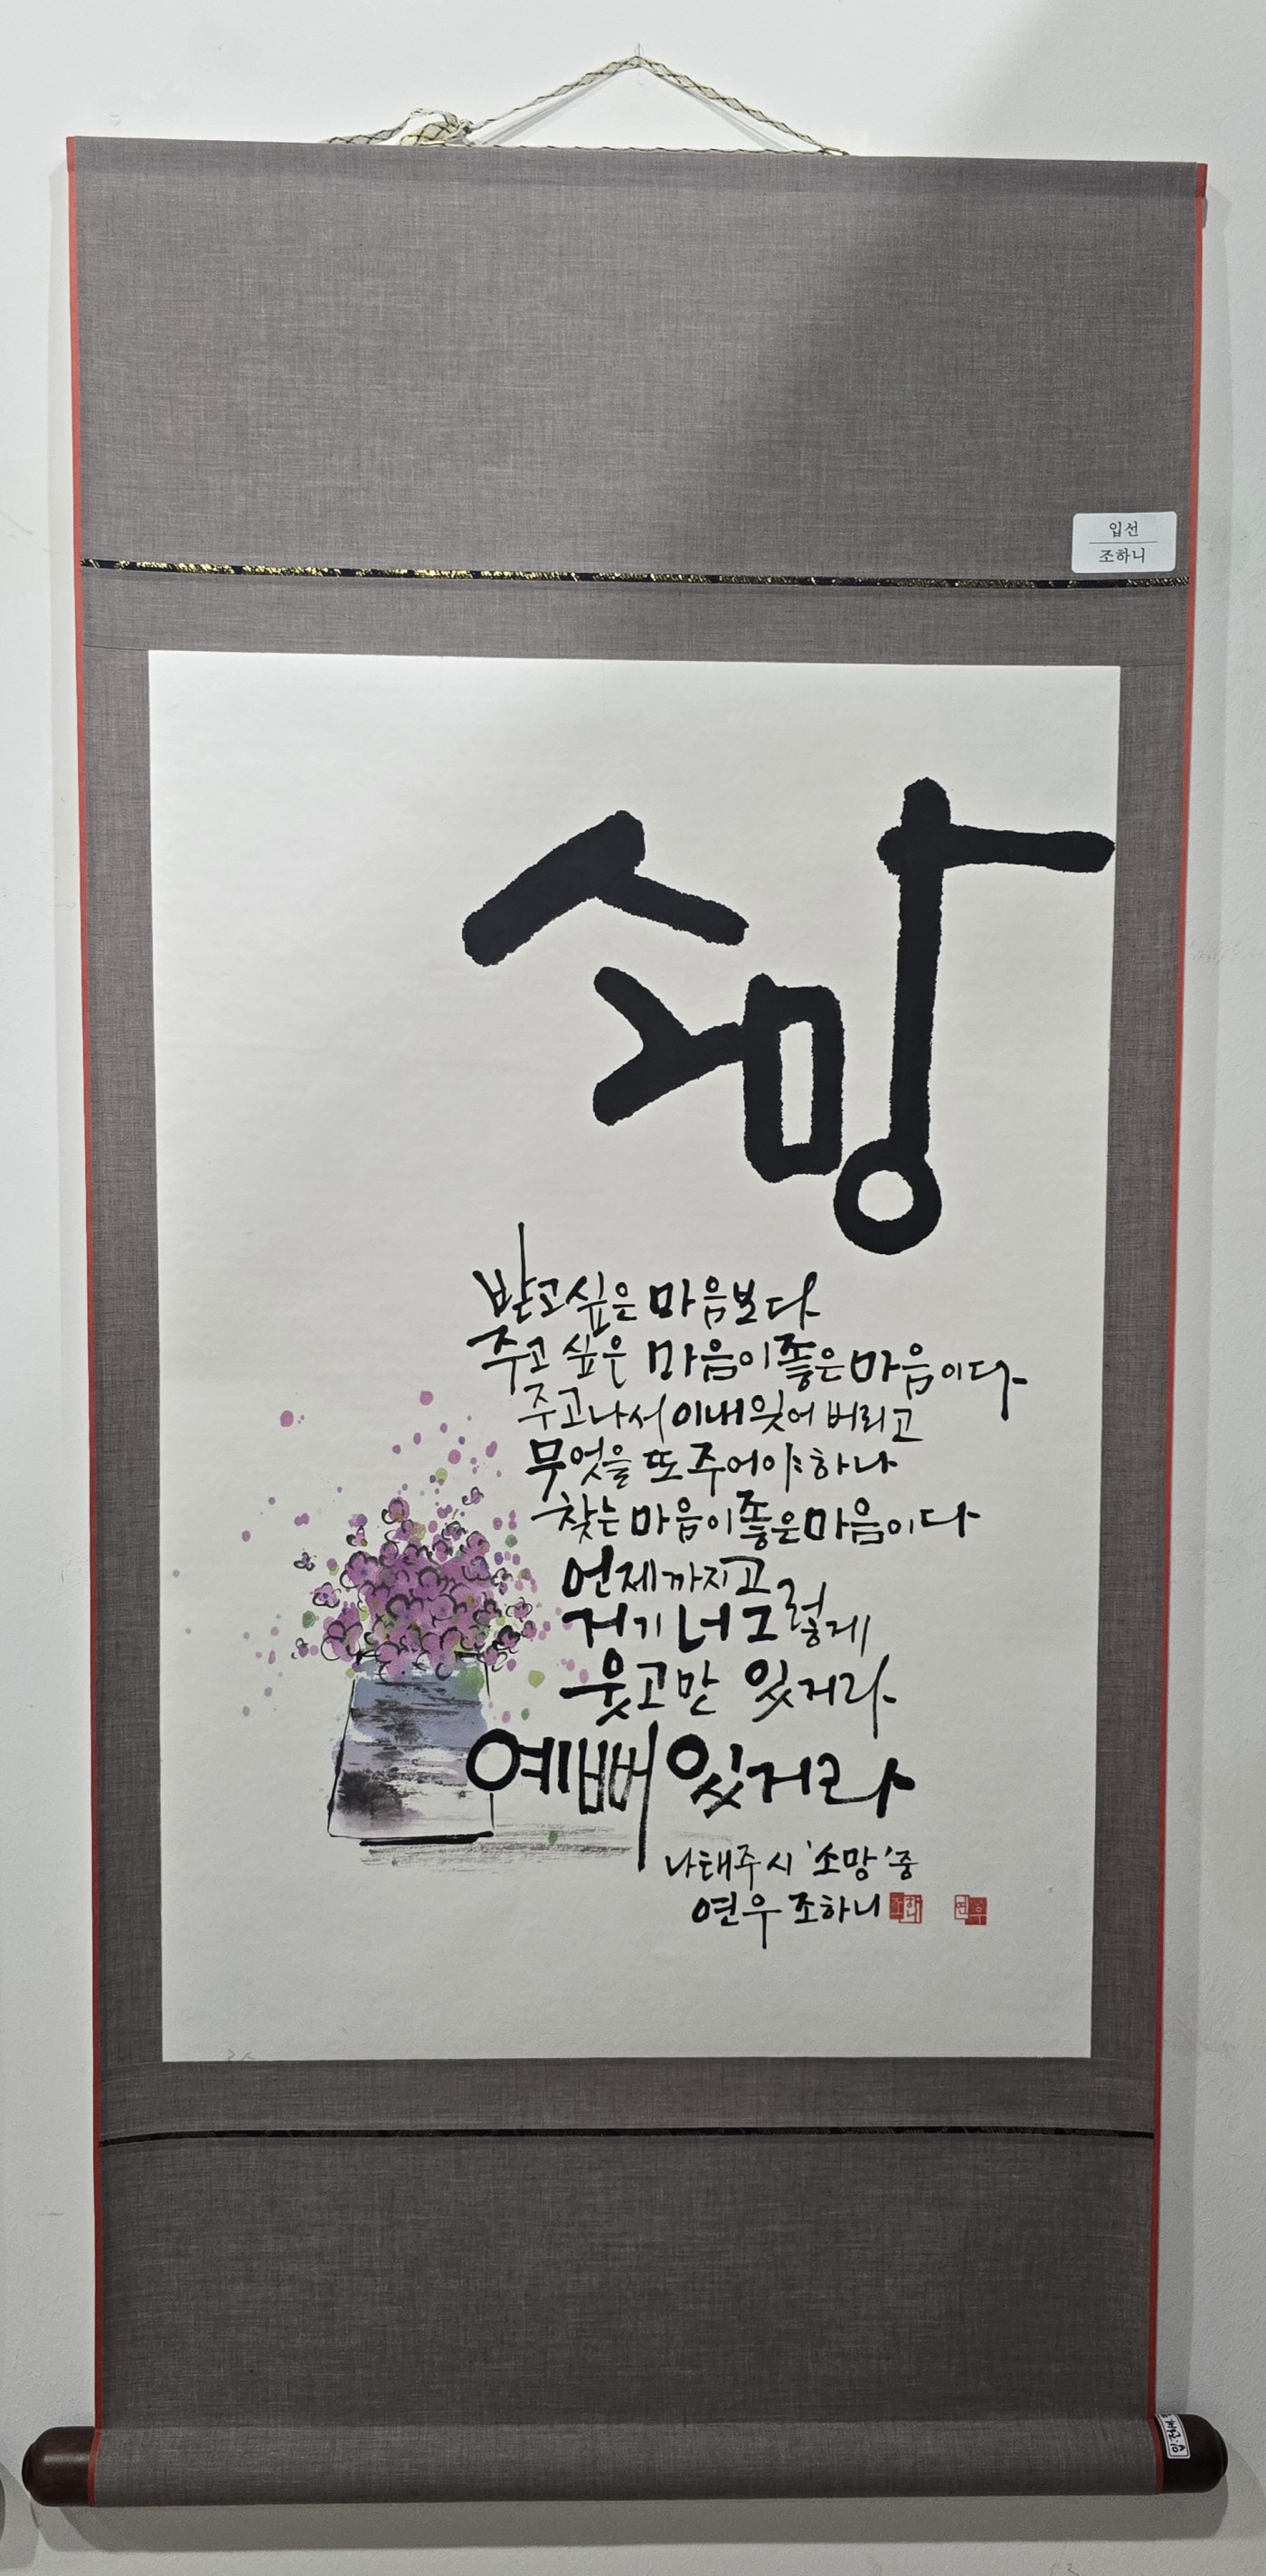 입선
조하니
소망
받고 싶은 마음보다
주고 싶은 마음이 좋은 마음이다
주고나서 이내 잊어 버리고
무엇을 또 주어야 하나
찾는 마음이 좋은 마음이다
언제까지고
거기 너 그렇게
웃고만 있거라
예뻐 있거라
나태주 시 '소망' 중
연우 조하니 조하니 연우